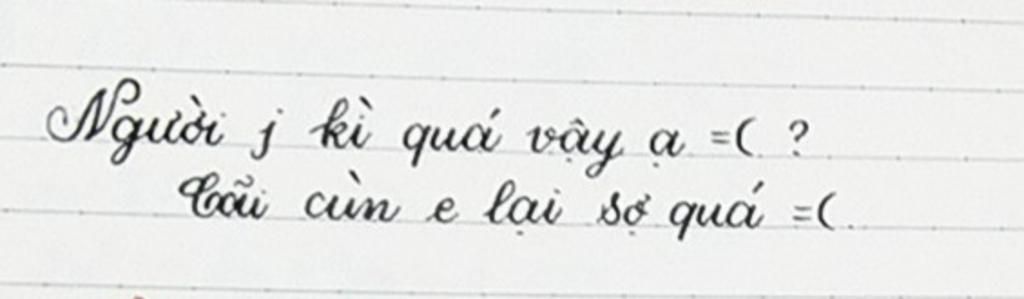 Người j kì quá vậy ạ =( ?
Cãi cùn e lại sợ quá =(.